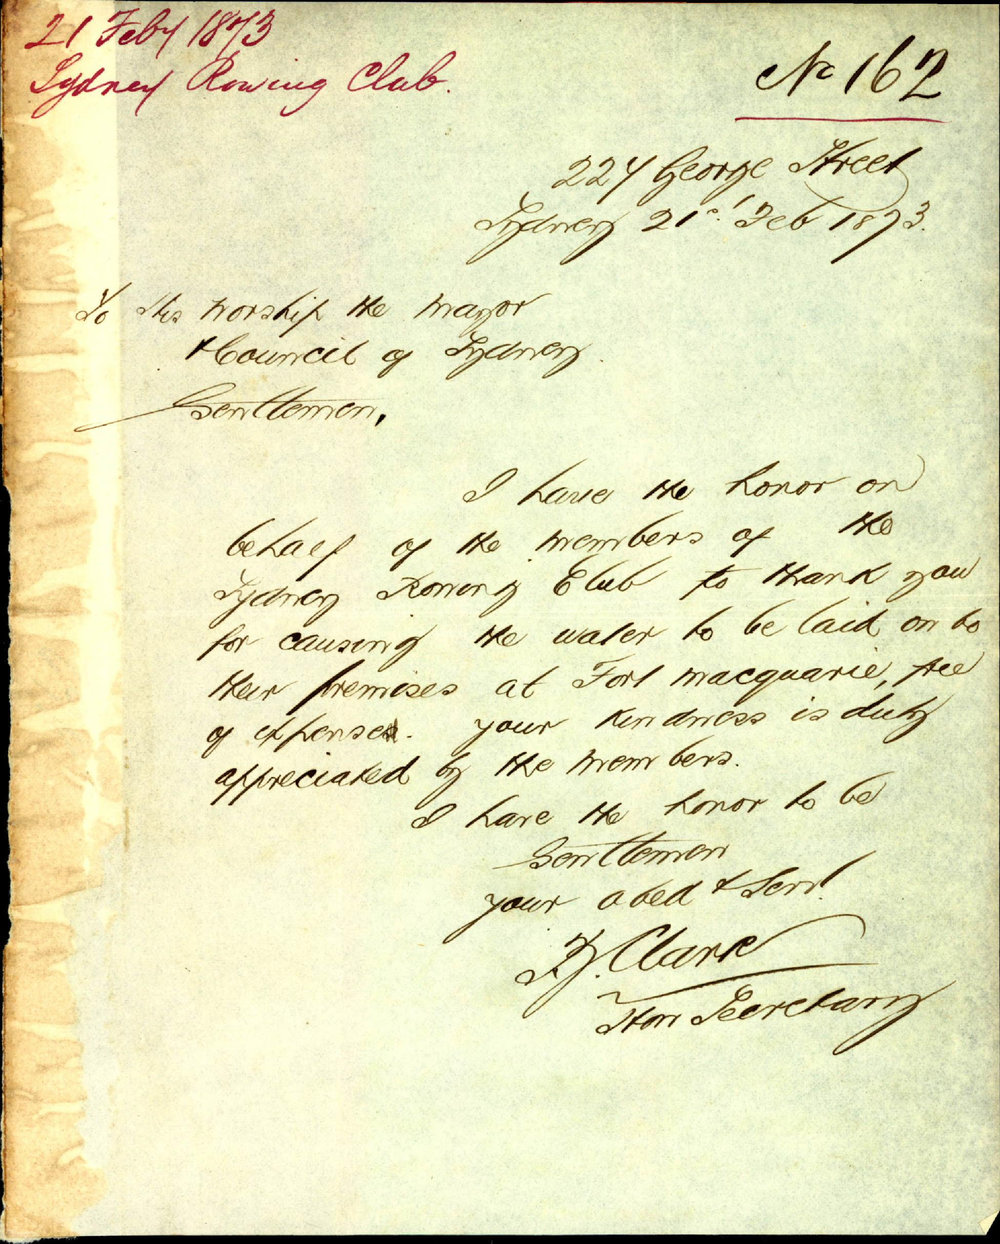 21 Feby 1873
Sydney Rowing Club.
No 162
227 George Street
Sydney 21st Feb 1873.
To His Worship the Mayor
& Council of Sydney.
Gentlemen,
I have the honor on
behalf of the members of the
Sydney Rowing Club to thank you
for causing the water to be laid on to
their premises at Fort Macquarie, free
of expense. your kindness is duly
appreciated by the members.
I have the honor to be
Gentlemen
your obed & Servt
Clark
Hon Secretary